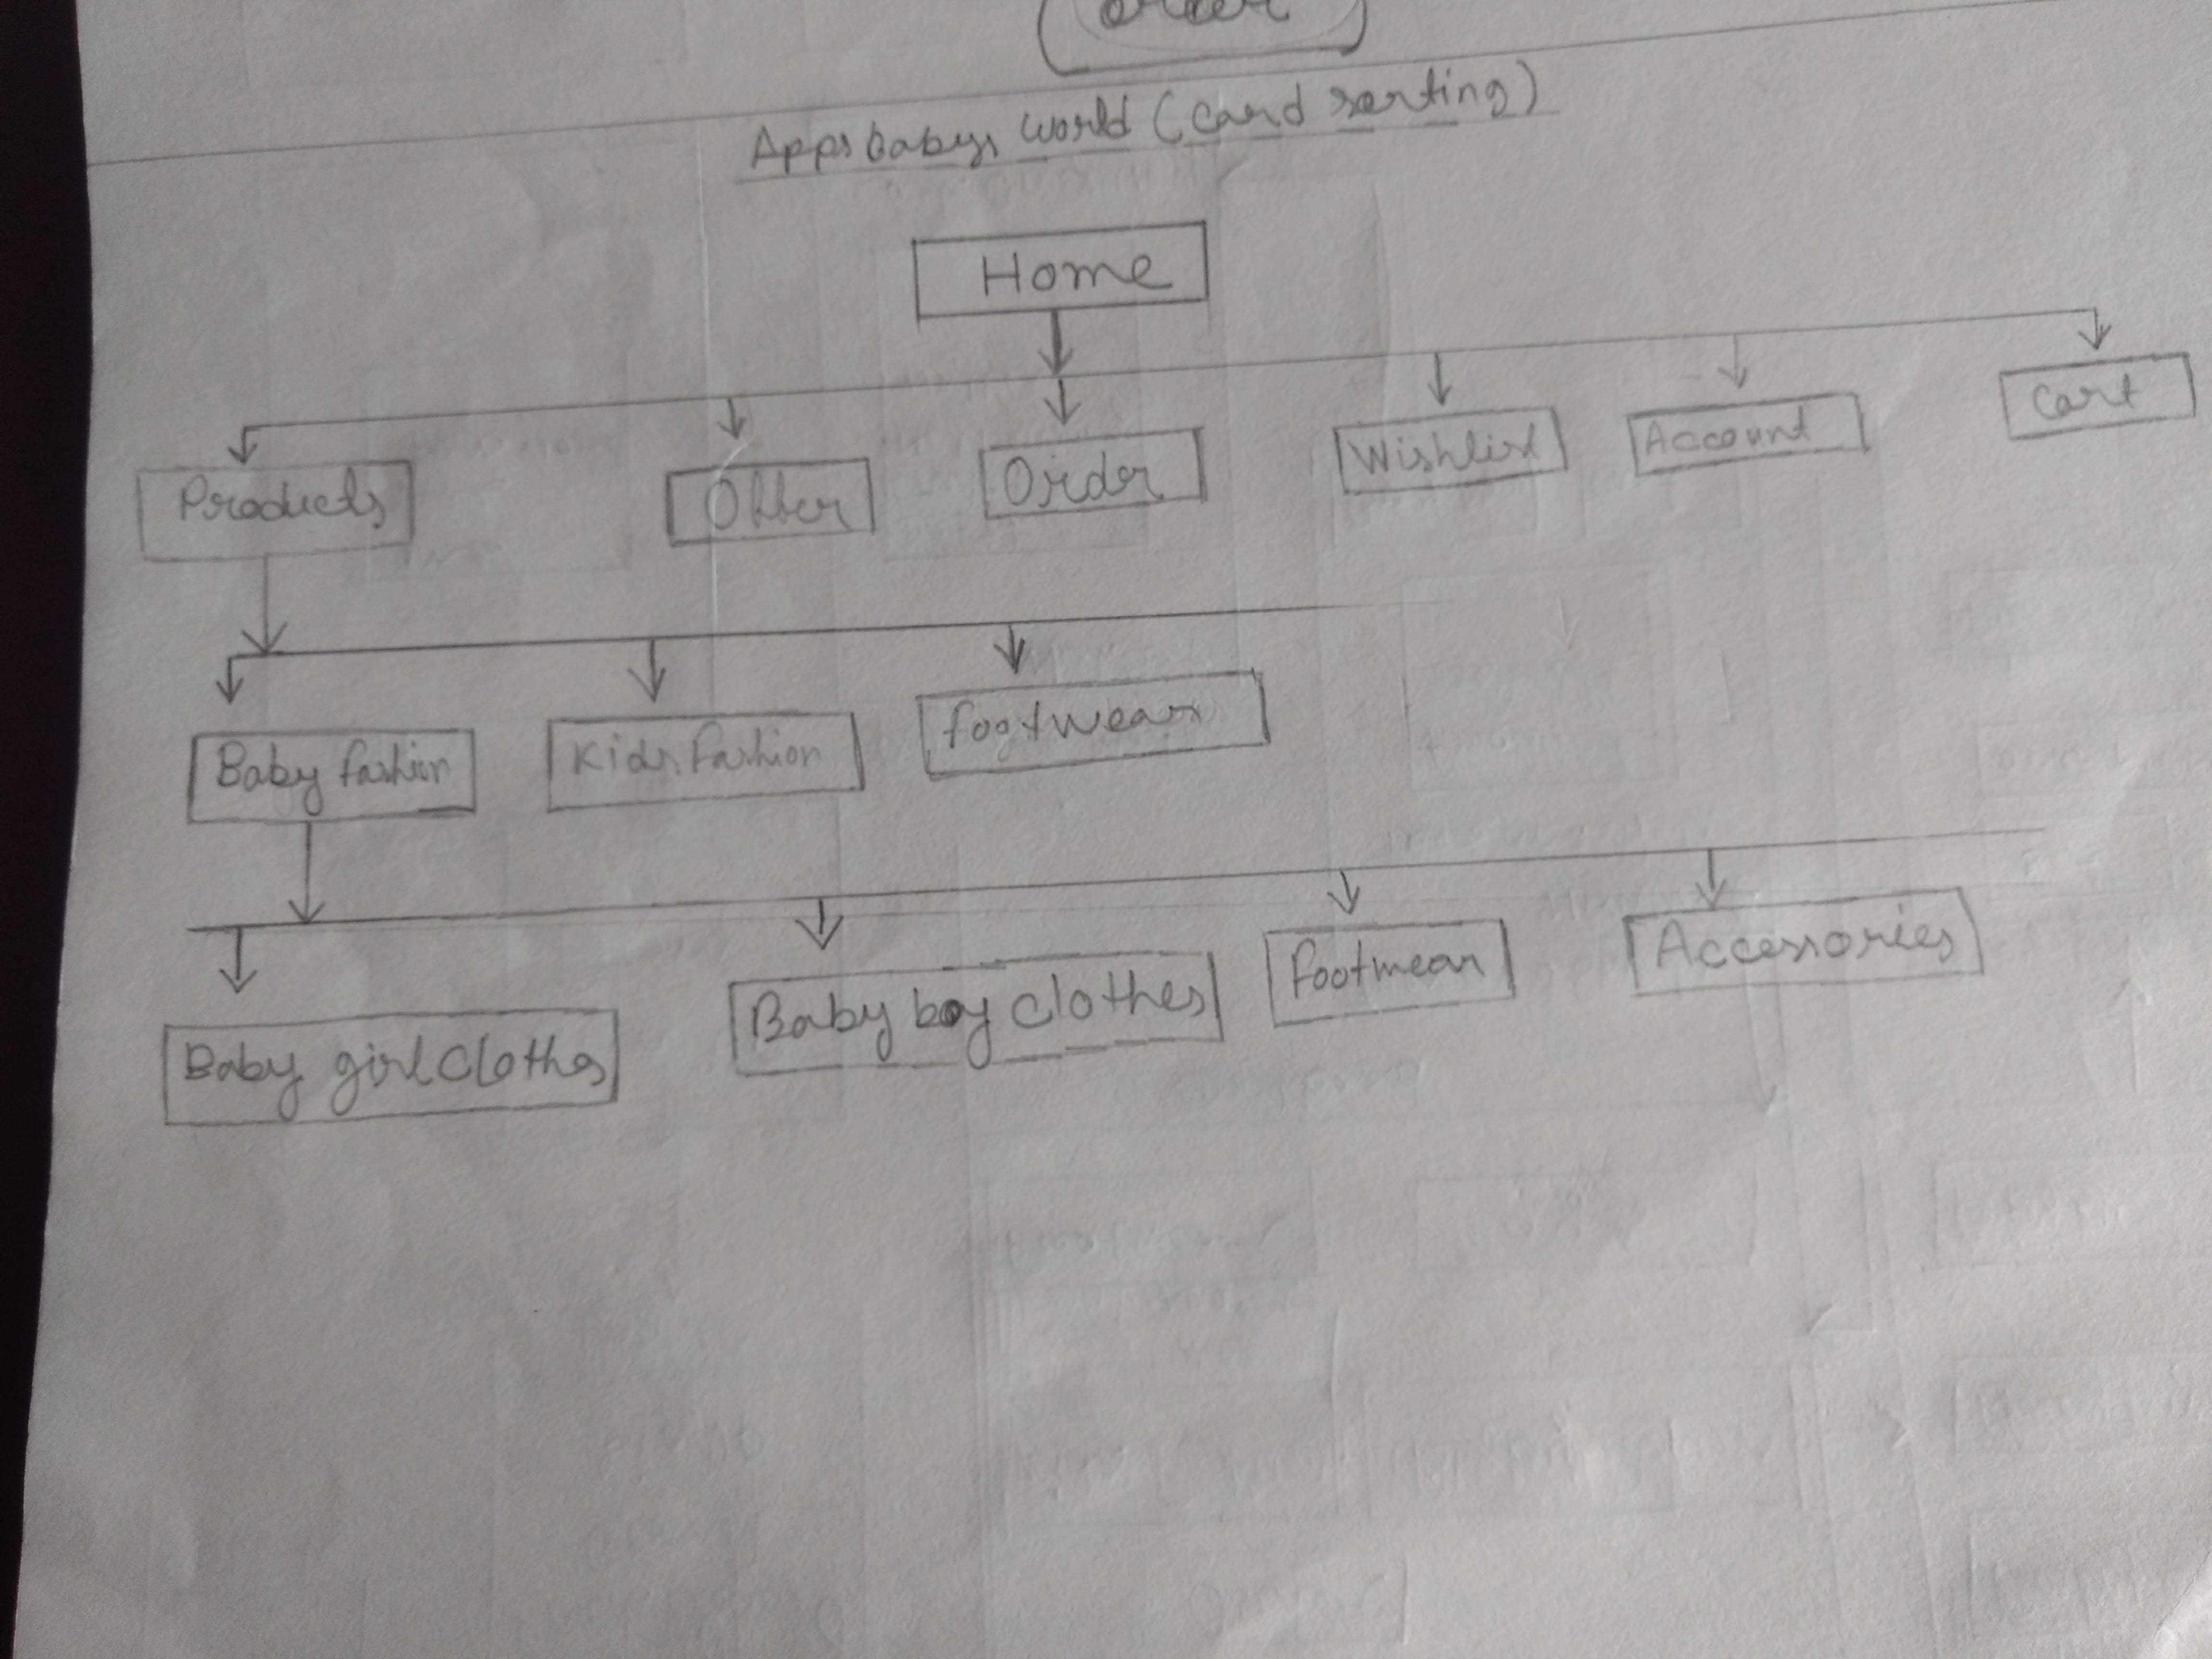 order
Apps babys world (card sorting)
Home
Products
Offer
Order
Wishlist
Account
Cart
Baby fashion
Kids fashion
footwear
Baby girl clothes
Baby boy clothes
footwear
Accessories